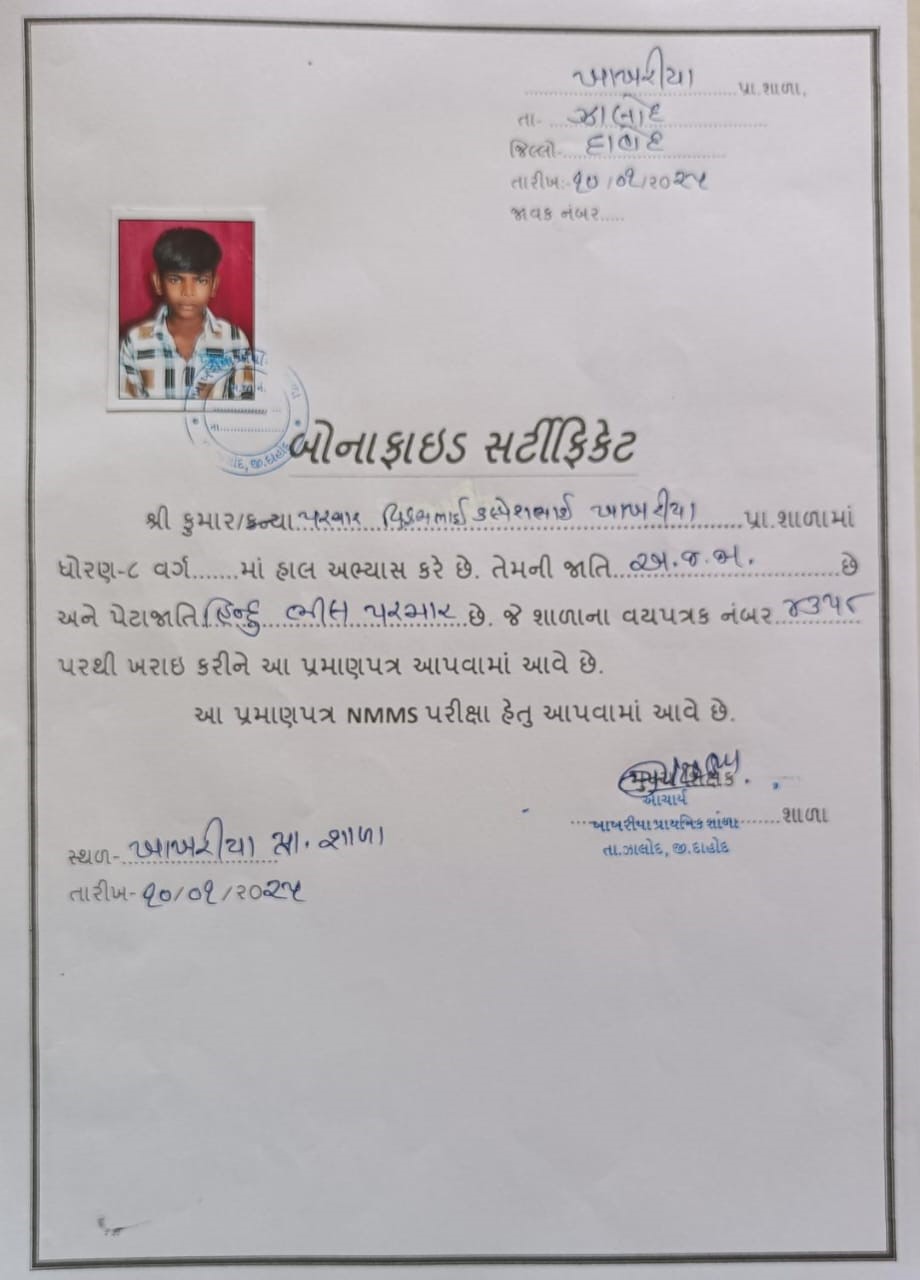 ખાખરીયા પ્રા.શાળા,
તા- ઝાલોદ
જિલ્લો- દાહોદ
તારીખ:- ૧૦/૦૧/૨૦૨૫
જાવક નંબર.....
તા.
દ, જી.દાહોદ
બોનાફાઇડ સર્ટીફિકેટ
શ્રી કુમાર/કન્યા પરમાર વિક્રમભાઈ કલ્પેશભાઈ ખાખરીયા પ્રા.શાળામાં
ધોરણ-૮ વર્ગ.......માં હાલ અભ્યાસ કરે છે. તેમની જાતિ અ.જ.જા. છે
અને પેટાજાતિ હિન્દુ ભીલ પરમાર છે. જે શાળાના વયપત્રક નંબર
પરથી ખરાઇ કરીને આ પ્રમાણપત્ર આપવામાં આવે છે.
આ પ્રમાણપત્ર NMMS પરીક્ષા હેતુ આપવામાં આવે છે.
મુખ્ય શિક્ષક
આચાર્ય
ખાખરીયા પ્રાથમિક શાળા શાળા
તા.ઝાલોદ, જી.દાહોદ
સ્થળ- ખાખરીયા પ્રા. શાળા
તારીખ- ૧૦/૦૧/૨૦૨૫